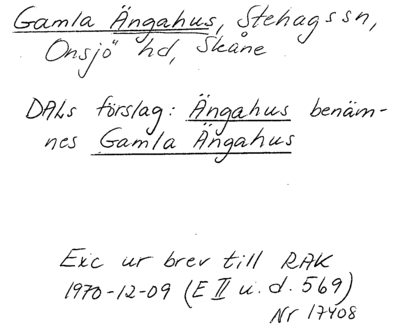 Gamla Ängahus, Stehagssn,
Onsjö hd, Skåne
DALs förslag: Ängahus benäm-
nes Gamla Ängahus
Exc ur brev till RAK
1970-12-09 (E II u.d. 569)
Nr 17408